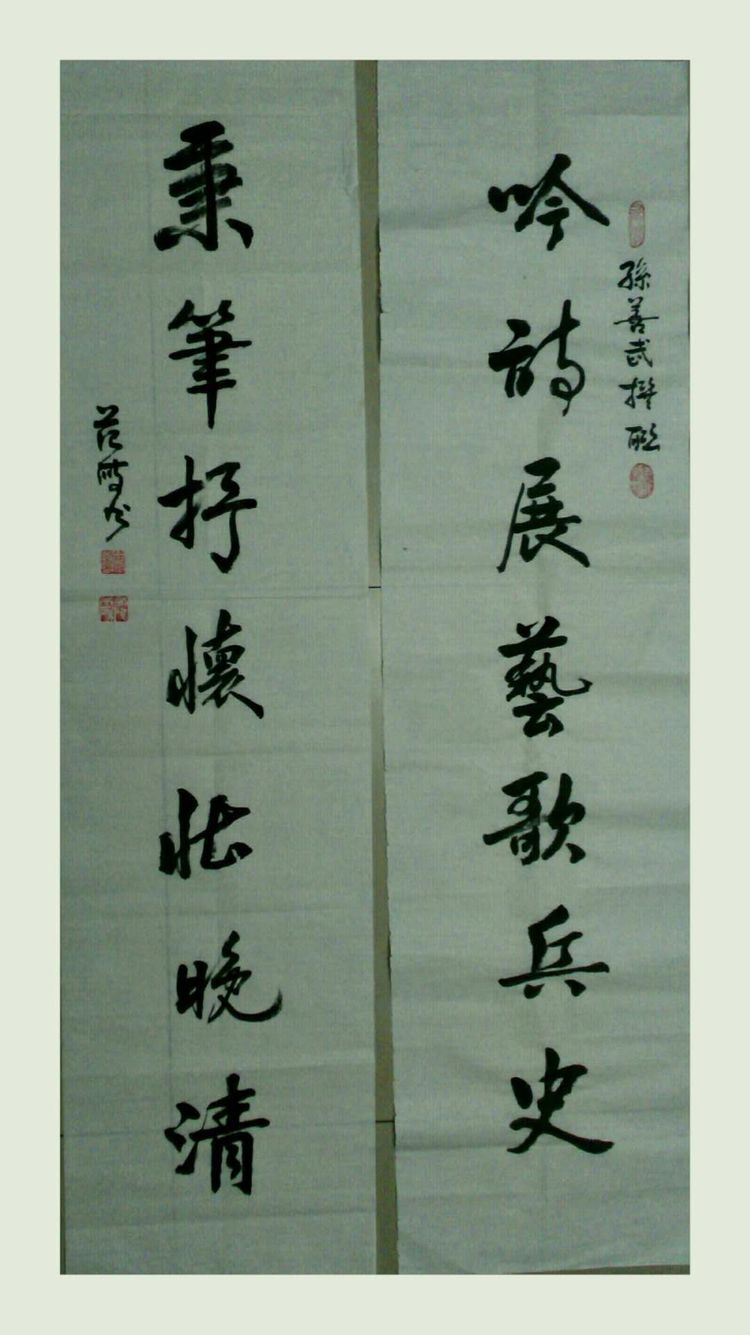 孫善武撰聯
吟詩展藝歌兵史
秉筆抒懷壮晚清
范